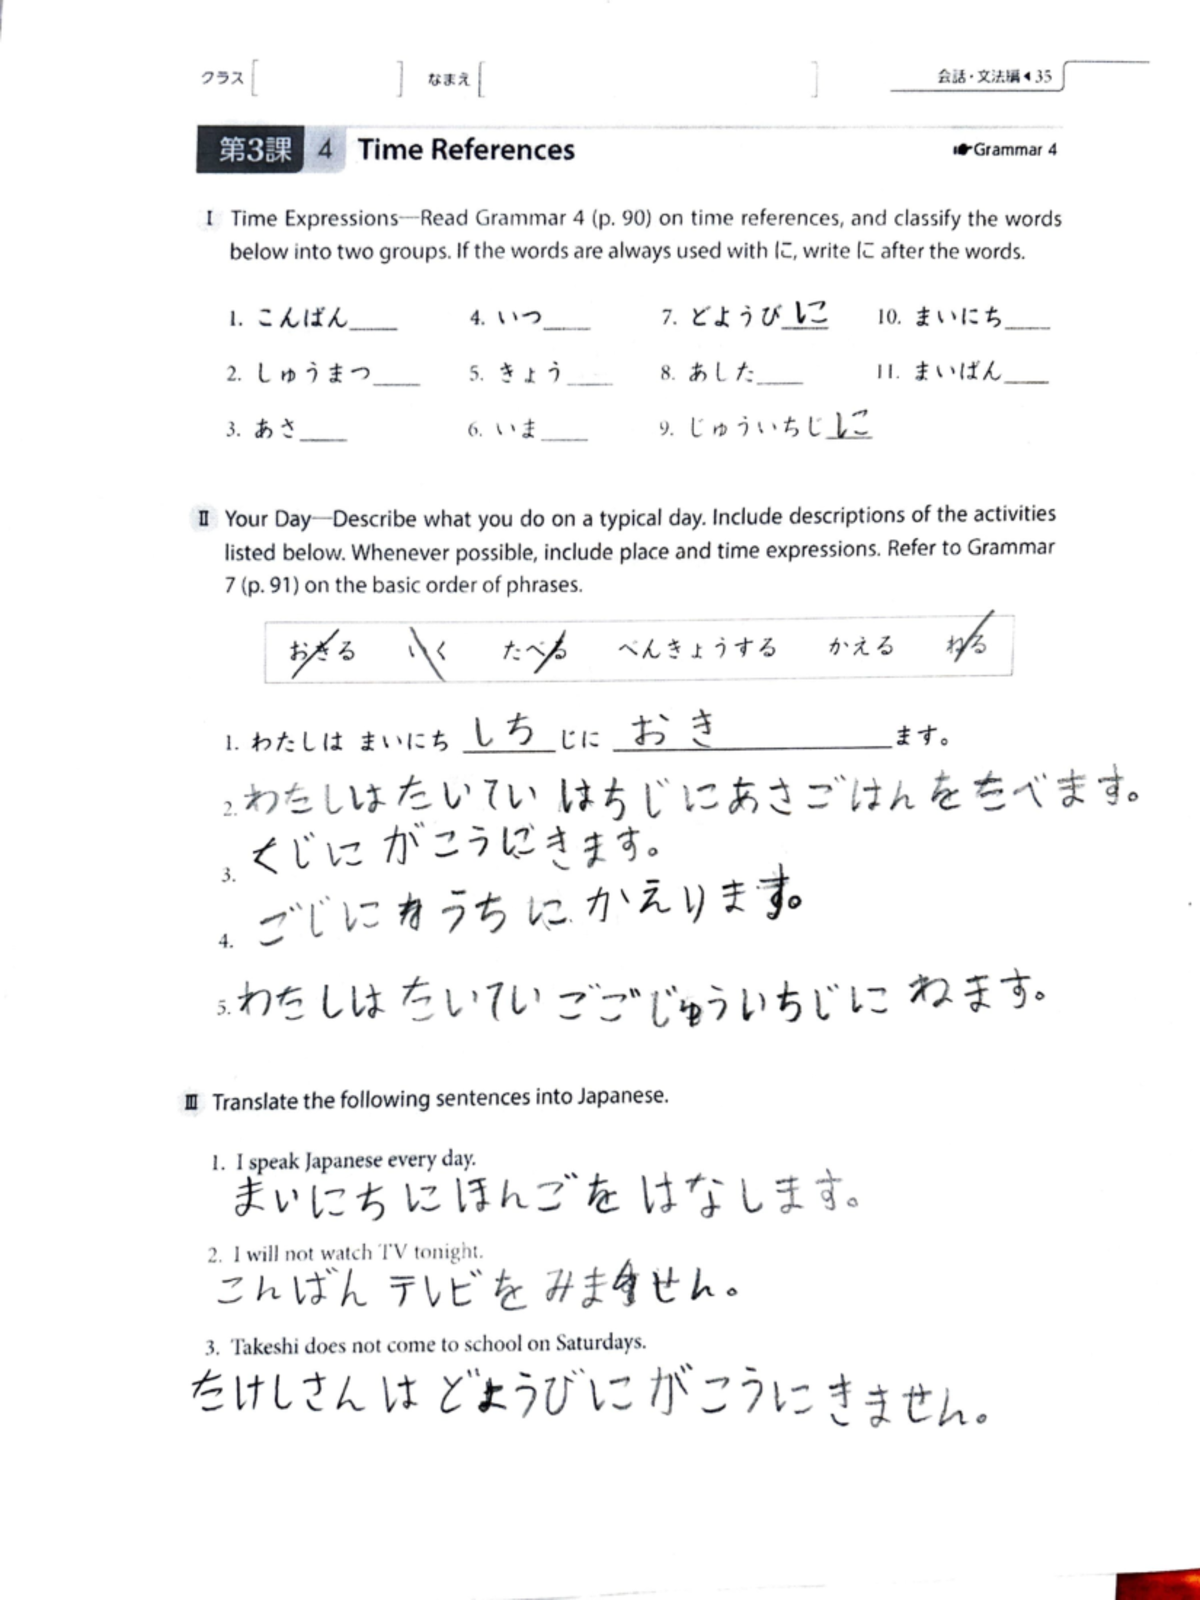 クラス[ ] なまえ[ ] 会話・文法編◀35
第3課 4 Time References ☛Grammar 4
I Time Expressions—Read Grammar 4 (p. 90) on time references, and classify the words
below into two groups. If the words are always used with に, write に after the words.
1. こんばん____ 4. いつ____ 7. どようび に 10. まいにち____
2. しゅうまつ____ 5. きょう____ 8. あした____ 11. まいばん____
3. あさ____ 6. いま____ 9. じゅういちじ に
II Your Day—Describe what you do on a typical day. Include descriptions of the activities
listed below. Whenever possible, include place and time expressions. Refer to Grammar
7 (p. 91) on the basic order of phrases.
おきる いく たべる べんきょうする かえる ねる
1. わたしは まいにち しち じに おき ます。
2. わたしは たいてい はちじ にあさごはん を たべます。
3. くじに がこうにきます。
4. ごじに うちに かえります。
5. わたしは たいてい ごごじゅういちじに ねます。
III Translate the following sentences into Japanese.
1. I speak Japanese every day.
まいにち にほんごを はなします。
2. I will not watch TV tonight.
こんばん テレビを みません。
3. Takeshi does not come to school on Saturdays.
たけしさんは どようびに がこうに きません。